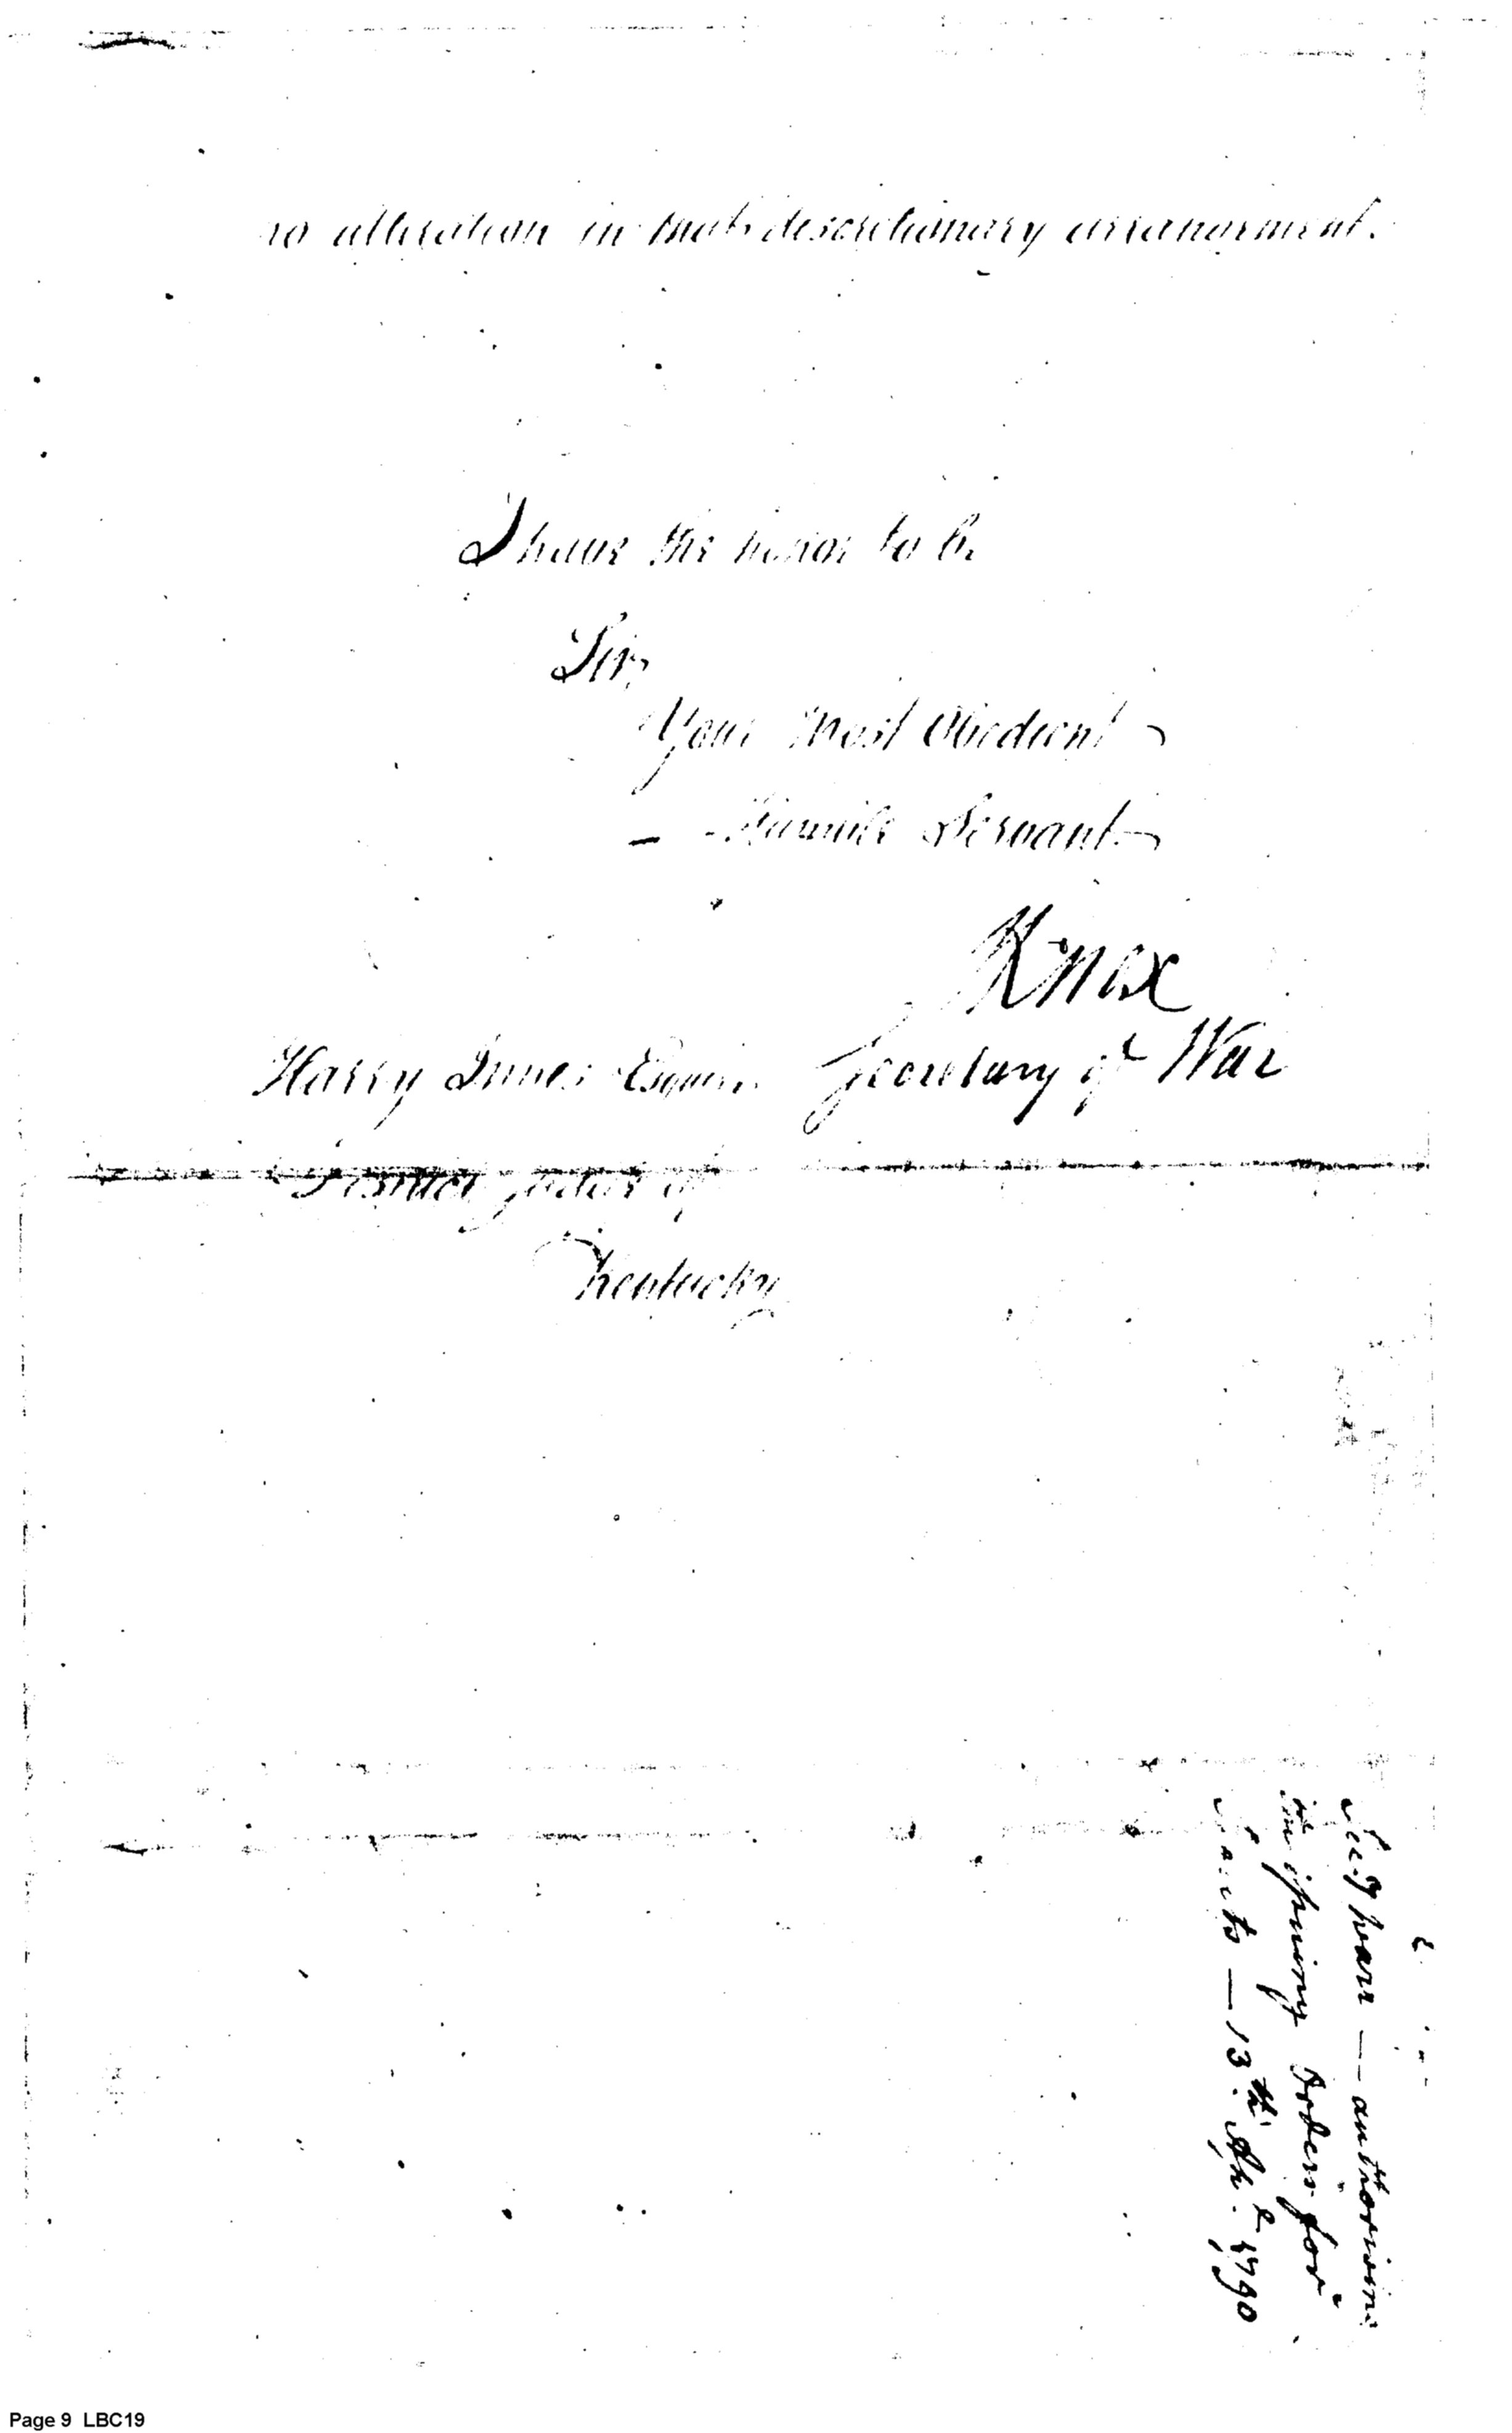 no alteration in that discretionary arrangement.
I have the honor to be
Sir,
Your Most Obedient
Humble Servant
Knox
Harry Innes Esquire Secretary of War
District Judge of
Kentucky
Secy of War — authorising
the issuing Orders for
Scouts — 13th Apl. 1790
Page 9 LBC19